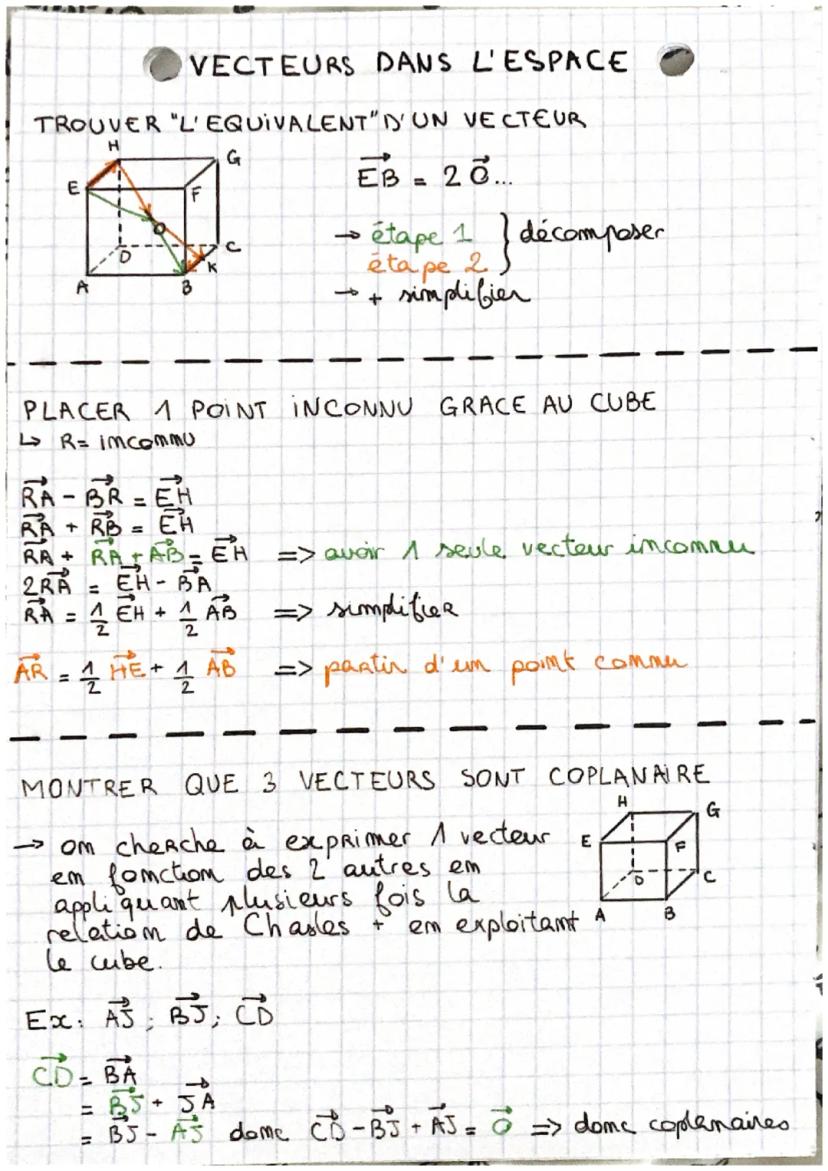 VECTEURS DANS L'ESPACE
TROUVER "L'EQUIVALENT" D'UN VECTEUR
H
G
E
F
O
D
C
K
A
B
EB = 2 O...
→ étape 1
étape 2
} décomposer
→ + simplifier
PLACER 1 POINT INCONNU GRACE AU CUBE
↳ R= inconnu
RA - BR = EH
RA + RB = EH
RA + RA + AB = EH => avoir 1 seule vecteur inconnu
2RA = EH - BA
RA = 1/2 EH + 1/2 AB => simplifier
AR = 1/2 HE + 1/2 AB => partir d'un point connu
MONTRER QUE 3 VECTEURS SONT COPLANAIRE
H
G
E
F
D
C
A
B
→ on cherche à exprimer 1 vecteur
en fonction des 2 autres en
appliquant plusieurs fois la
relation de Chasles + en exploitant
le cube.
Ex: AJ ; BJ ; CD
CD = BA
= BJ + JA
= BJ - AJ donc CD - BJ + AJ = O => donc coplanaires